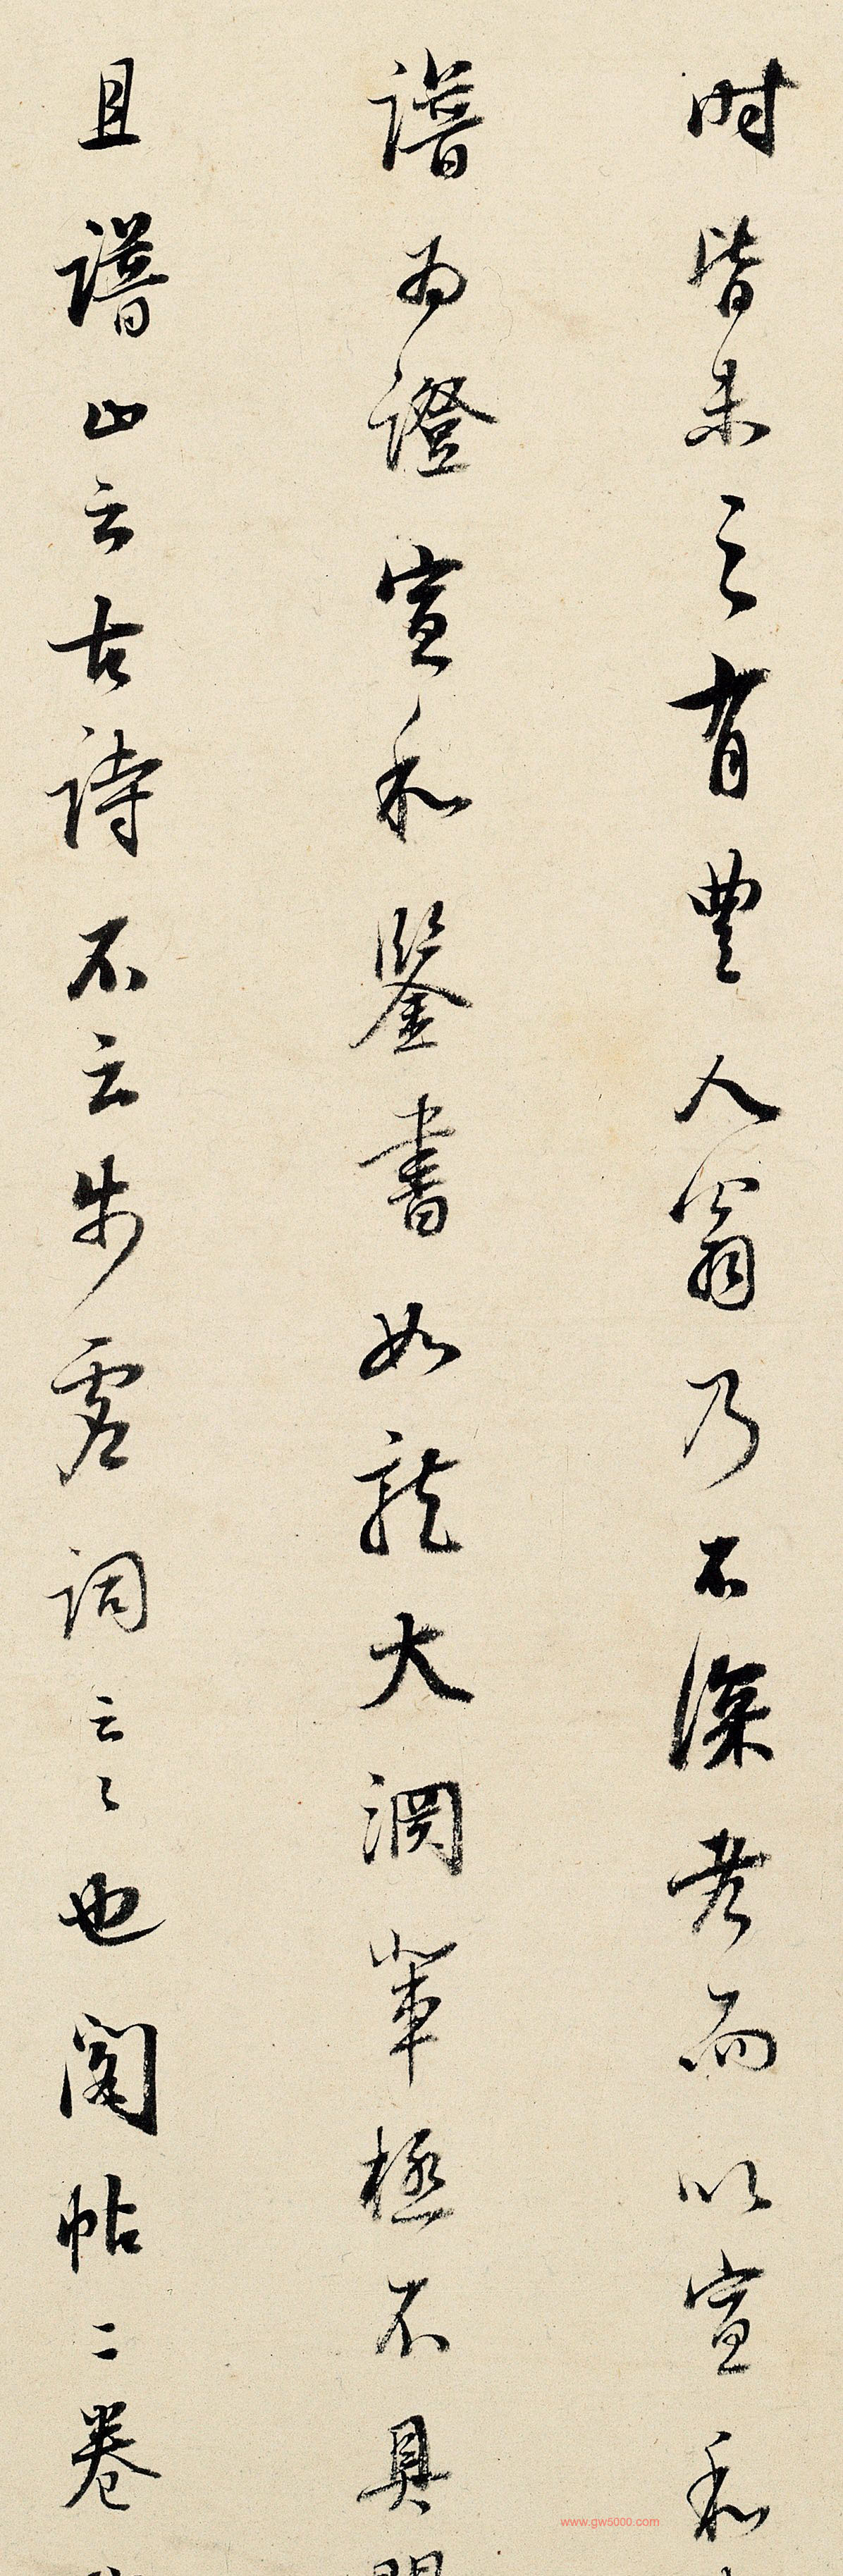 时皆未之有豐人翁乃不深考而以宣和
譜为證宣和鑒書如龍大渊輩極不具
且譜止云古詩不云步虚詞云〻也閣帖二卷
www.gw5000.com